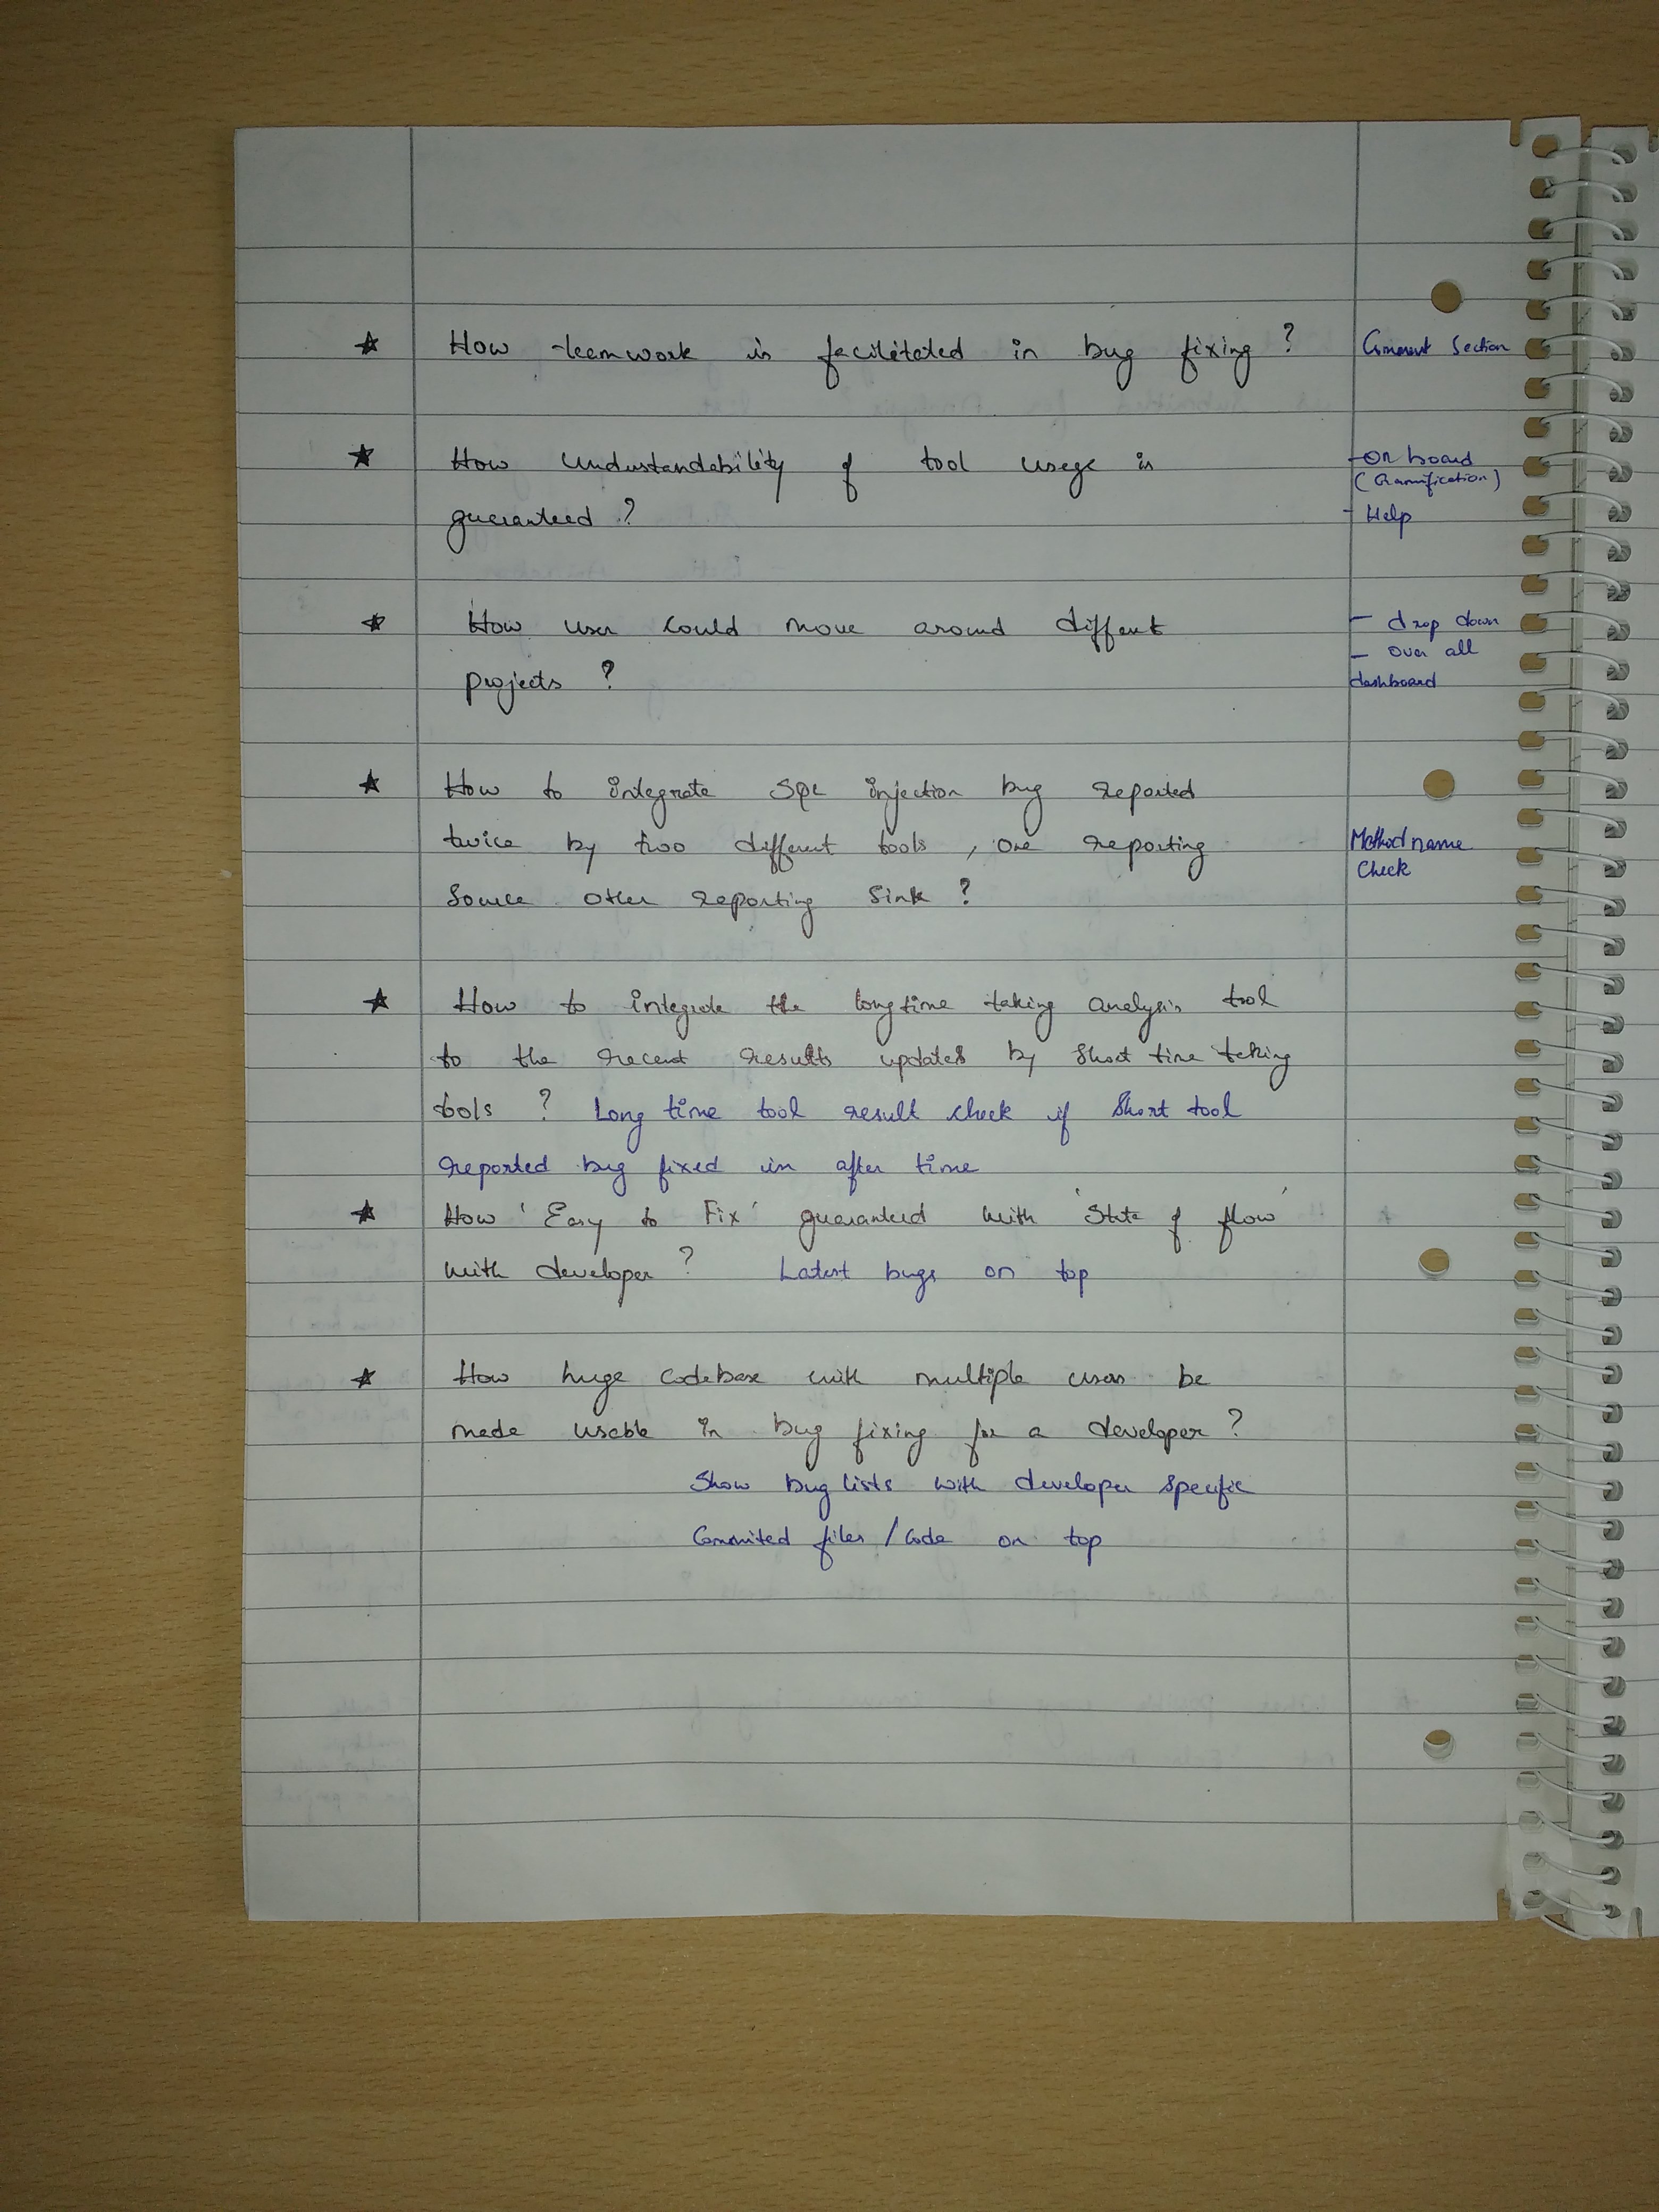 ★ How teamwork is facilitated in bug fixing ? Comment Section
★ How understandability of tool usage is - On board
(Gamification)
guaranteed ? - Help
★ How user could move around diffent - drop down
- Over all
projects ? dashboard
★ How to integrate SQL injection bug reported
twice by two different tools , one reporting Method name
Check
Source other reporting Sink ?
★ How to integrate the long time taking analysis tool
to the recent results updated by short time taking
tools ? Long time tool result check if Short tool
reported bug fixed in after time
★ How 'Easy to Fix' guaranteed with 'State of flow'
with developer ? Latest bugs on top
★ How huge codebase with multiple users be
made usable in bug fixing for a developer ?
Show bug lists with developer specific
Commited files / Code on top